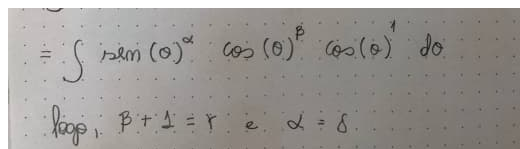 = ∫ sen(θ)^α cos(θ)^β cos(θ)^1 dθ
logo, β + 1 = γ e α = δ